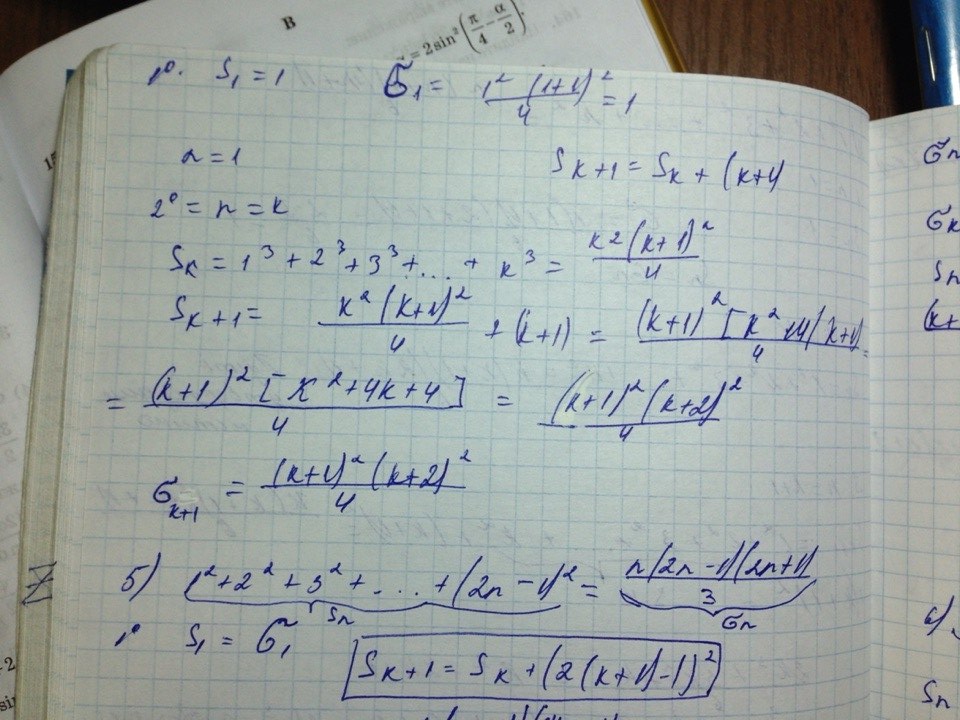 B
= 2sin²(π/4 − α/2).
1°. S₁ = 1 σ₁ = 1² (1+1)²/4 = 1
n = 1 S k+1 = S k + (k+1)
2° = n = k
S k = 1³ + 2³ + 3³ + ... + k³ = k²(k+1)²/4
S k+1 = k²(k+1)²/4 + (k+1) = (k+1)²[k²+4(k+1)/4 =
= (k+1)²[k²+4k+4]/4 = (k+1)²(k+2)²/4
σ k+1 = (k+1)²(k+2)²/4
5) 1² + 2² + 3² + .... + (2n−1)² = n(2n−1)(2n+1)/3
Sn σn
1° S₁ = σ₁
S k+1 = S k + (2(k+1)−1)²
σn
σk
Sn
(k+
Sn